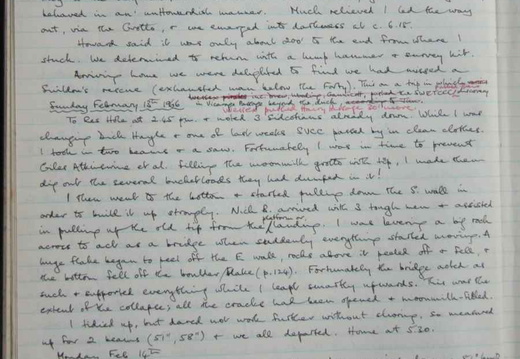 behaved in an unHowerdish manner. Much relieved I led the way
out, via the Grotto, & we emerged into darkness at c. 6.15.
Howard said it was only about 200' to the end from where I
stuck. We determined to return with a lump hammer & survey kit.
Arriving home we were delighted to find we had missed a
Swildon's rescue (exhausted man below the Forty). This on a trip in which
Sunday February 13th 1966. in Vicarage Passage beyond the duck,
To the Hole at 2.45 pm. & noted 3 Sidcotians already down. While I was
changing Dick Hayle & one of last weeks SVCC passed by in clean clothes.
I took in two beams & a saw. Fortunately I was in time to prevent
Giles et al filling the moonmilk grotto with tip, I made them
dig out the several bucketloads they had dumped in it!
I then went to the bottom & started pulling down the S. wall in
order to build it up strongly. Nick B. arrived with 3 tough men & assisted
in pulling up the old tip from the platform or landing. I was levering a big rock
across to act as a bridge when suddenly everything started moving. A
huge flake began to peel off the E wall, rocks above it peeled off & fell, &
the bottom fell off the boulder flake (p.124). Fortunately the bridge acted as
such & supported everything while I leapt smartly upwards. This was the
extent of the collapse, all the cracks had been opened & moonmilk-filled.
I tidied up, but dared not work further without shoring, so measured
up for 2 beams (51", 58") & we all departed. Home at 5.30.
Monday Feb 14th